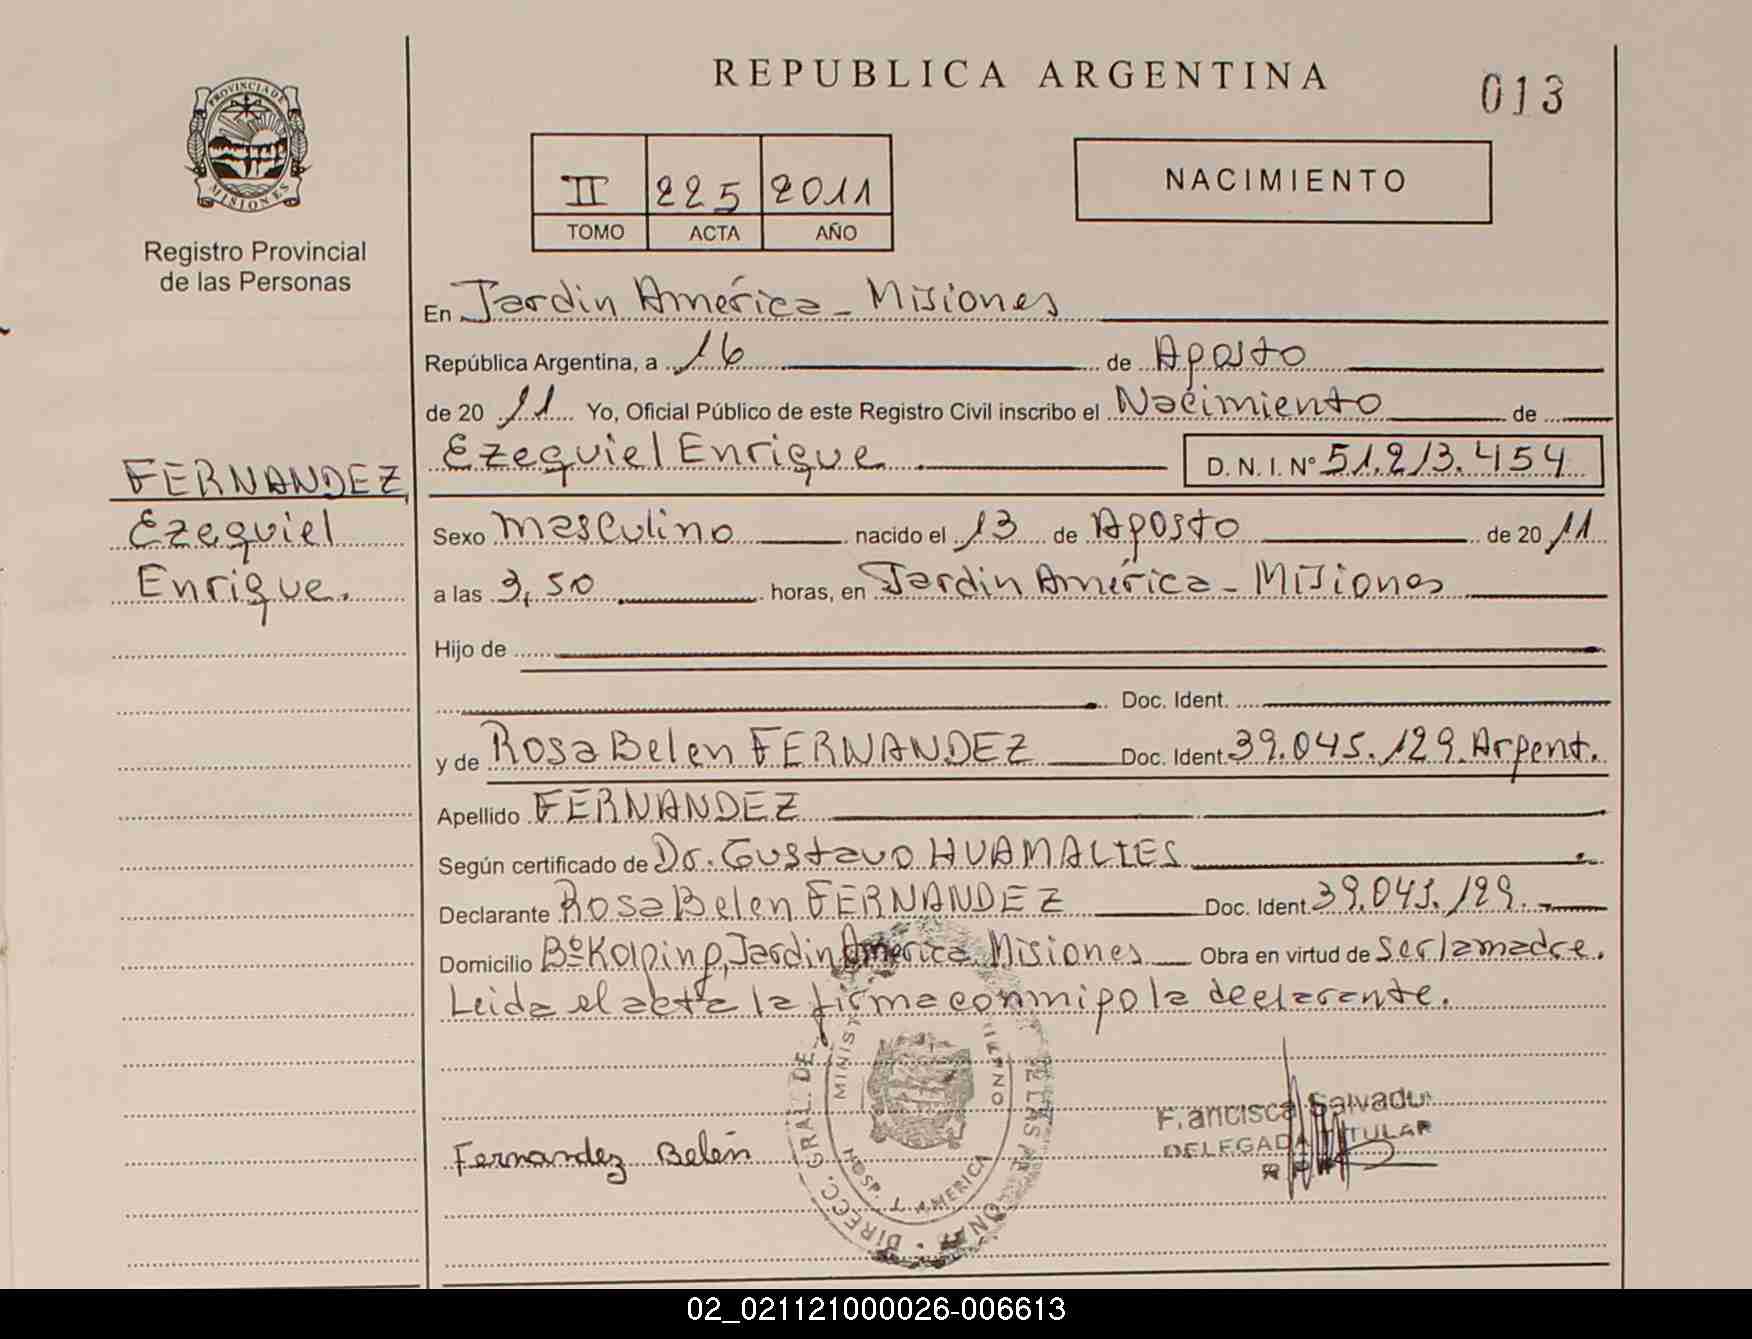 REPUBLICA ARGENTINA
013
PROVINCIA DE
MISIONES
Registro Provincial
de las Personas
II 225 2011
TOMO ACTA AÑO
NACIMIENTO
En Jardin América - Misiones
República Argentina, a 16 de Agosto
de 20 11 Yo, Oficial Público de este Registro Civil inscribo el Nacimiento de
Ezequiel Enrique D. N. I. Nº 51.213.454
FERNANDEZ,
Ezequiel
Enrique.
Sexo Masculino nacido el 13 de Agosto de 20 11
a las 3,50 horas, en Jardin América - Misiones
Hijo de
Doc. Ident.
y de Rosa Belen FERNANDEZ Doc. Ident 39.045.129. Argent.
Apellido FERNANDEZ
Según certificado de Dr. Gustavo HUAMALIES
Declarante Rosa Belen FERNANDEZ Doc. Ident 39.045.129.
Domicilio Bº Kolping, Jardin América Misiones Obra en virtud de ser la madre.
Leida el acta la firma conmigo la declarante.
Fernandez Belén
DIRECC. GRAL. DE
HOSP. J. AMERICA
Francisca Salvadu
DELEGADA TITULAR
02_021121000026-006613